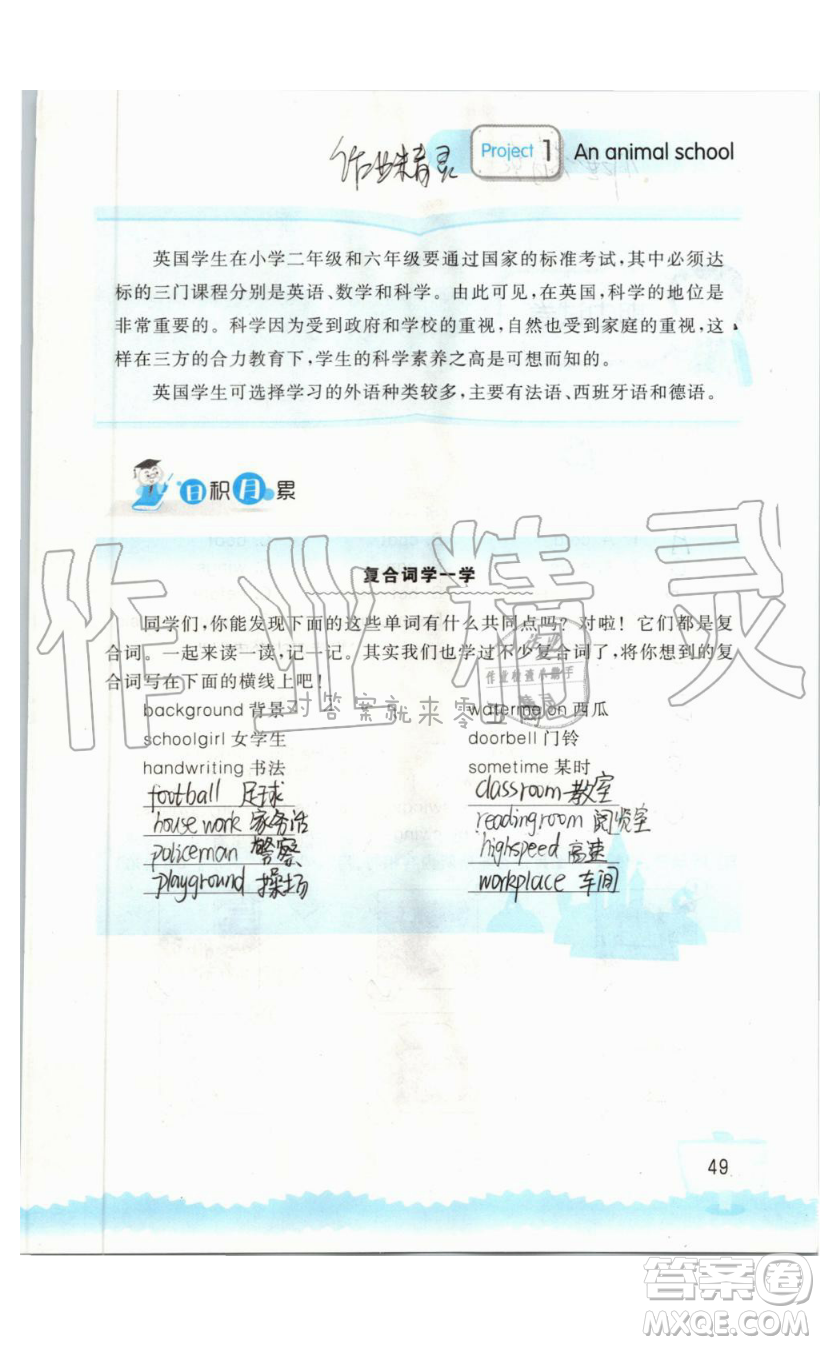 作业精灵
Project 1 An animal school
英国学生在小学二年级和六年级要通过国家的标准考试,其中必须达
标的三门课程分别是英语、数学和科学。由此可见,在英国,科学的地位是
非常重要的。科学因为受到政府和学校的重视,自然也受到家庭的重视,这
样在三方的合力教育下,学生的科学素养之高是可想而知的。
英国学生可选择学习的外语种类较多,主要有法语、西班牙语和德语。
日积月累
作业精灵
复合词学一学
同学们,你能发现下面的这些单词有什么共同点吗?对啦!它们都是复
合词。一起来读一读,记一记。其实我们也学过不少复合词了,将你想到的复
合词写在下面的横线上吧!
对答案就来零五网
作业检查小助手
精灵
background 背景 watermelon 西瓜
schoolgirl 女学生 doorbell 门铃
handwriting 书法 sometime 某时
football 足球 classroom 教室
housework 家务活 readingroom 阅览室
policeman 警察 highspeed 高速
playground 操场 workplace 车间
49
答案卷
MXQE.COM